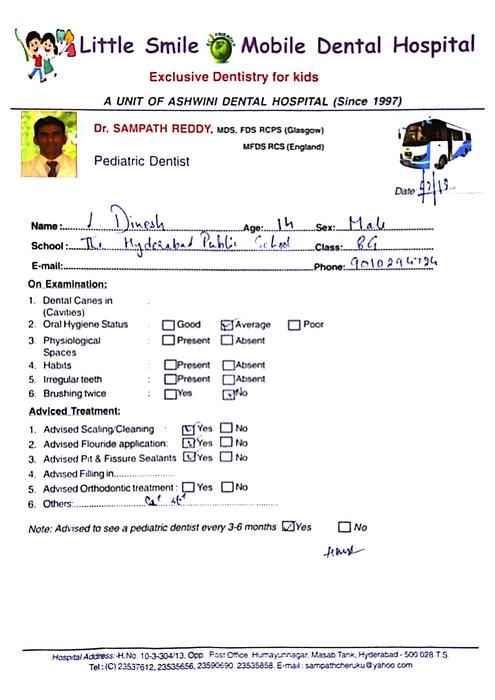 Little Smile Mobile Dental Hospital
Exclusive Dentistry for kids
A UNIT OF ASHWINI DENTAL HOSPITAL (Since 1997)
Dr. SAMPATH REDDY, MDS, FDS RCPS (Glasgow)
MFDS RCS (England)
Pediatric Dentist
Date
Name: J. Dinesh Age: 14 Sex: Male
School: The Hyderabad Public School Class: 8G
E-mail: Phone: 9010294724
On Examination:
1. Dental Caries in : 
(Cavities)
2. Oral Hygiene Status : Good Average Poor
3. Physiological : Present Absent
Spaces
4. Habits : Present Absent
5. Irregular teeth : Present Absent
6. Brushing twice : Yes No
Adviced Treatment:
1. Advised Scaling/Cleaning : Yes No
2. Advised Flouride application: Yes No
3. Advised Pit & Fissure Sealants Yes No
4. Advised Filling in
5. Advised Orthodontic treatment : Yes No
6. Others:
Note: Advised to see a pediatric dentist every 3-6 months Yes No
Hospital Address:-H.No. 10-3-304/13, Opp. Post Office, Humayunnagar, Masab Tank, Hyderabad - 500 028 T.S.
Tel:(C) 23537612, 23535656, 23590690, 23535858. E-mail: sampathcheruku@yahoo.com